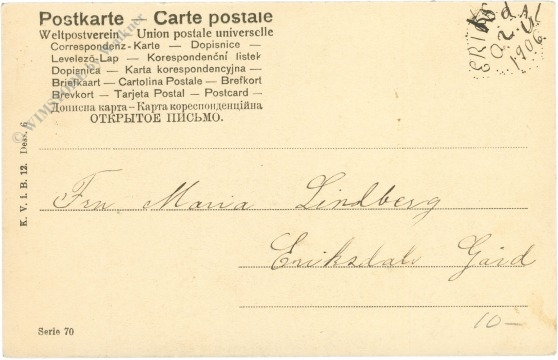 Postkarte — Carte postale
Weltpostverein — Union postale universelle
Correspondenz-Karte — Dopisnice —
Levelező-Lap — Korespondenční listek
Dopisnica — Karta korespondencyjna —
Briefkaart — Cartolina Postale — Brefkort
Brevkort — Tarjeta Postal — Postcard —
Дописна карта — Карта кореспонденційна
ОТКРЫТОЕ ПИСЬМО.
1906
K. V. i. B. 12. Dess. 6
Fru Maria Lindberg
Eriksdals Gård
10—
Serie 70